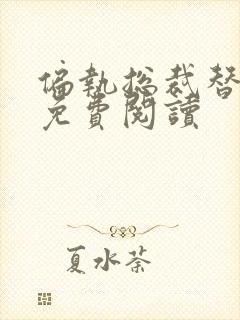 偏執總裁替
免費閱讀
夏水荼